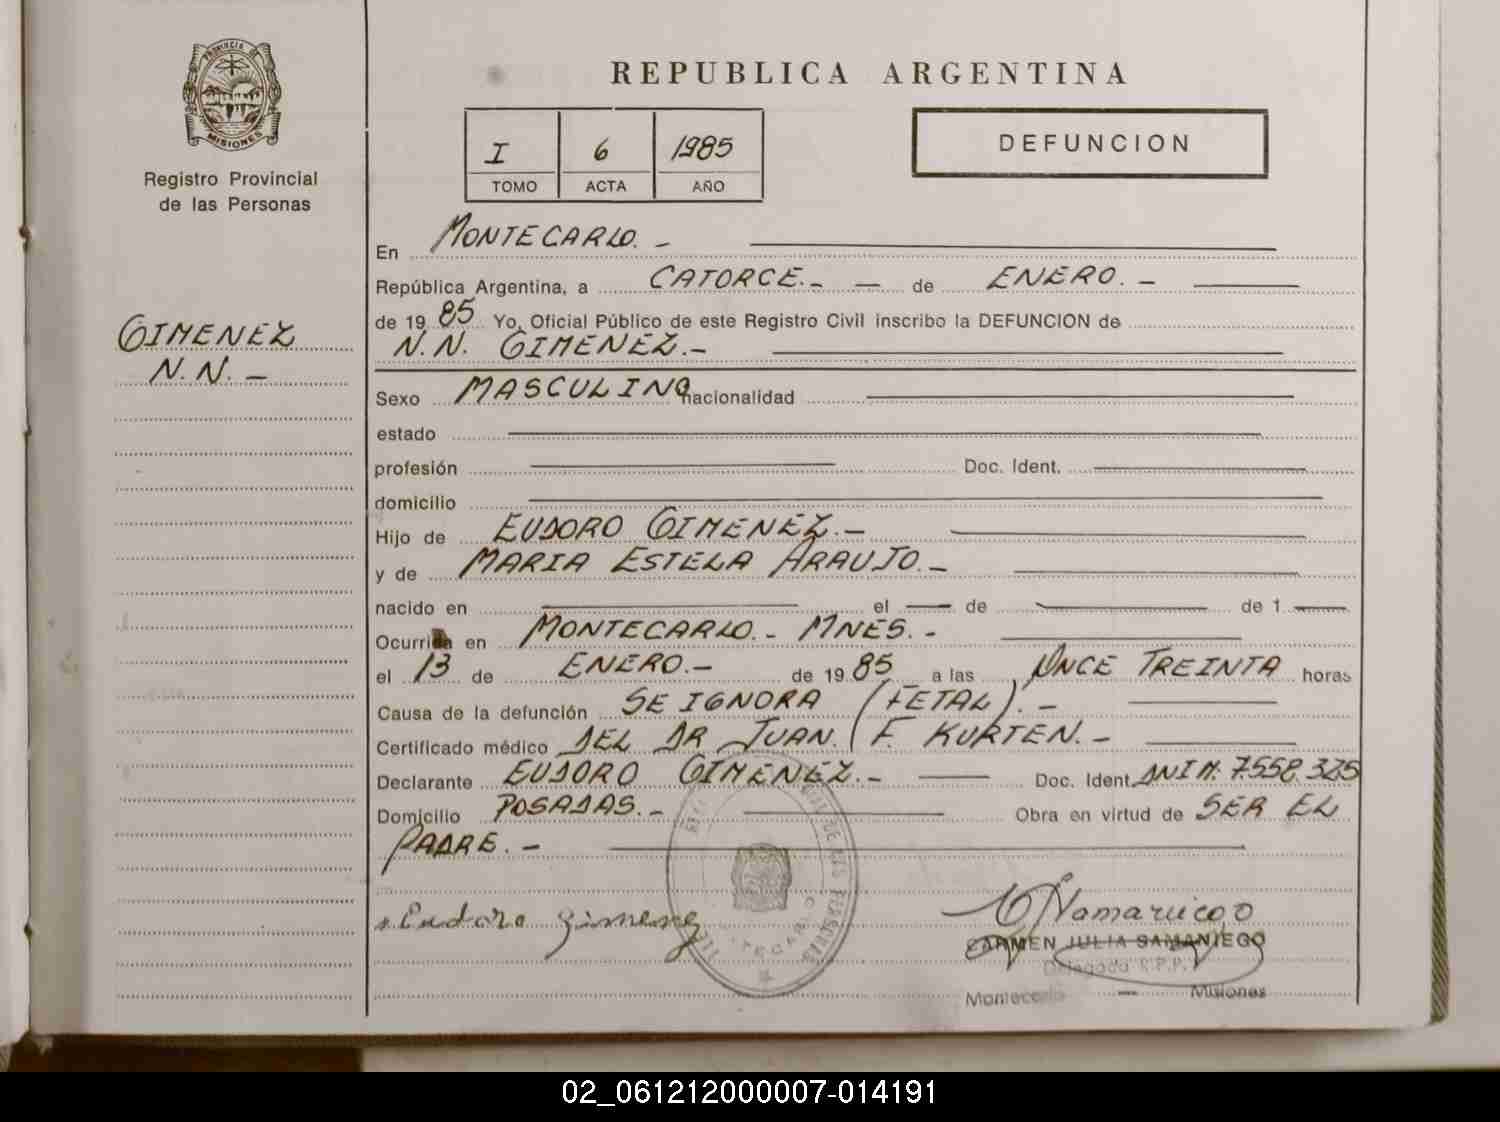 PROVINCIA DE
MISIONES
Registro Provincial
de las Personas
GIMENEZ
N.N. -
REPUBLICA ARGENTINA
I 6 1985
TOMO ACTA AÑO
DEFUNCION
En MONTECARLO. -
República Argentina, a CATORCE.- - de ENERO. -
de 19 85 Yo, Oficial Público de este Registro Civil inscribo la DEFUNCION de
N.N. GIMENEZ.-
Sexo MASCULINO nacionalidad
estado
profesión Doc. Ident.
domicilio
Hijo de EUDORO GIMENEZ.-
y de MARIA ESTELA ARAUJO.-
nacido en el de de 1
Ocurrida en MONTECARLO.- MNES.-
el 13 de ENERO.- de 19 85 a las ONCE TREINTA horas
Causa de la defunción SE IGNORA (FETAL).-
Certificado médico DEL DR JUAN. F. KURTEN.-
Declarante EUDORO GIMENEZ.- Doc. Ident. DNI N. 7.558.325
Domicilio POSADAS.- Obra en virtud de SER EL
PADRE.-
Eudoro Gimenez
CARMEN JULIA SAMANIEGO
Delegada R.P.P.
Montecarlo - Misiones
02_061212000007-014191